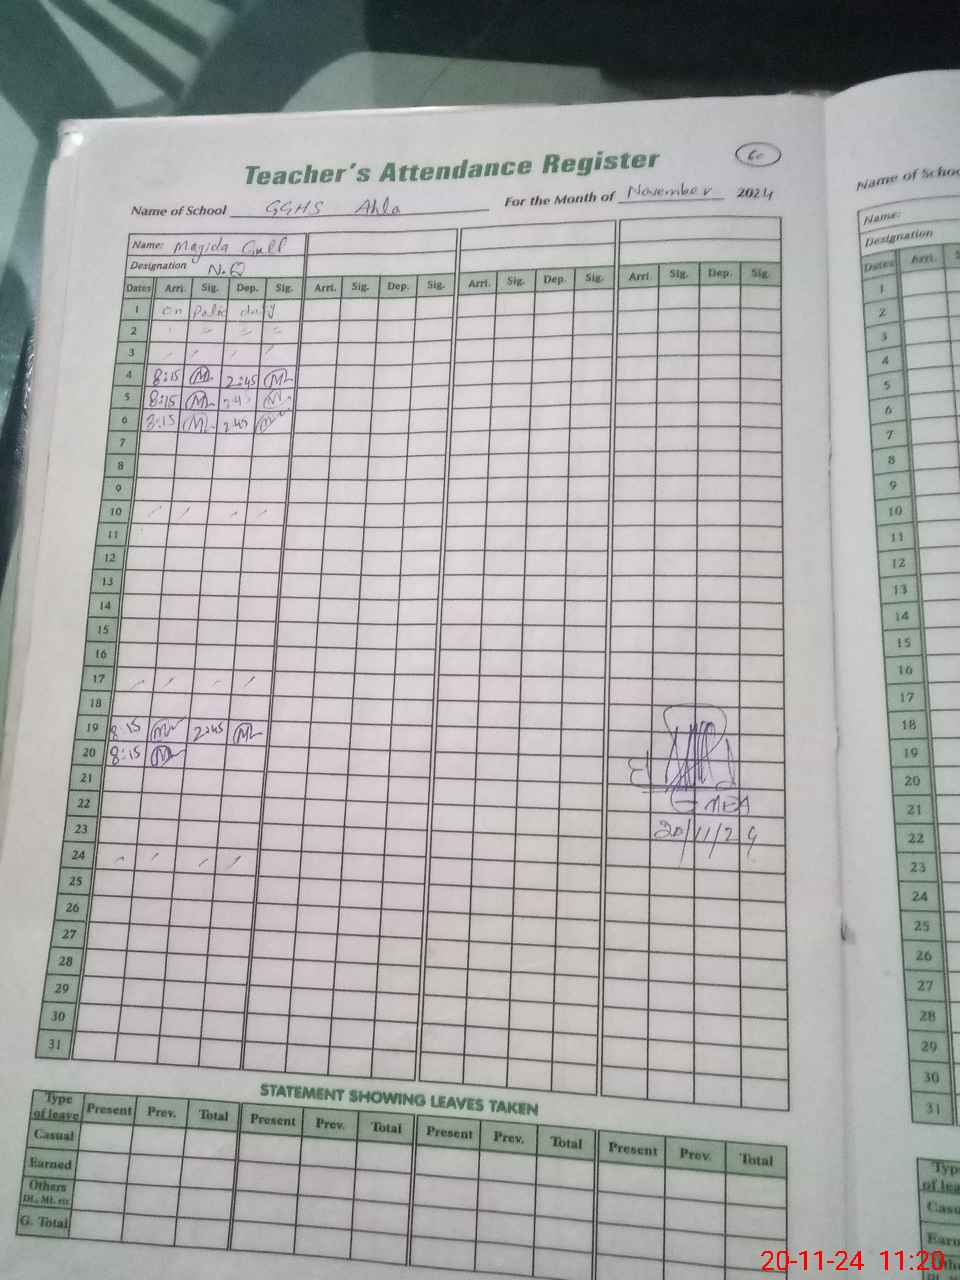 Teacher's Attendance Register
60
Name of School GGHS Ahla For the Month of November 2024
Name: Majida
Designation N.Q
Dates Arri. Sig. Dep. Sig. Arri. Sig. Dep. Sig. Arri. Sig. Dep. Sig. Arri. Sig. Dep. Sig.
1 on polio duty
2 " " " "
3
4 8:15 2:45
5 8:15 2:45
6 8:15 2:45
7
8
9
10
11
12
13
14
15
16
17
18
19 8:15 2:45
20 8:15
21
22 MEA
23 20/11/24
24
25
26
27
28
29
30
31
STATEMENT SHOWING LEAVES TAKEN
Type of leave Present Prev. Total Present Prev. Total Present Prev. Total Present Prev. Total
Casual
Earned
Others
DL, ML etc
G. Total
Name of Schoo
Name:
Designation
Dates Arri. S
1
2
3
4
5
6
7
8
9
10
11
12
13
14
15
16
17
18
19
20
21
22
23
24
25
26
27
28
29
30
31
Typ
of lea
Casu
Earn
20-11-24 11:20